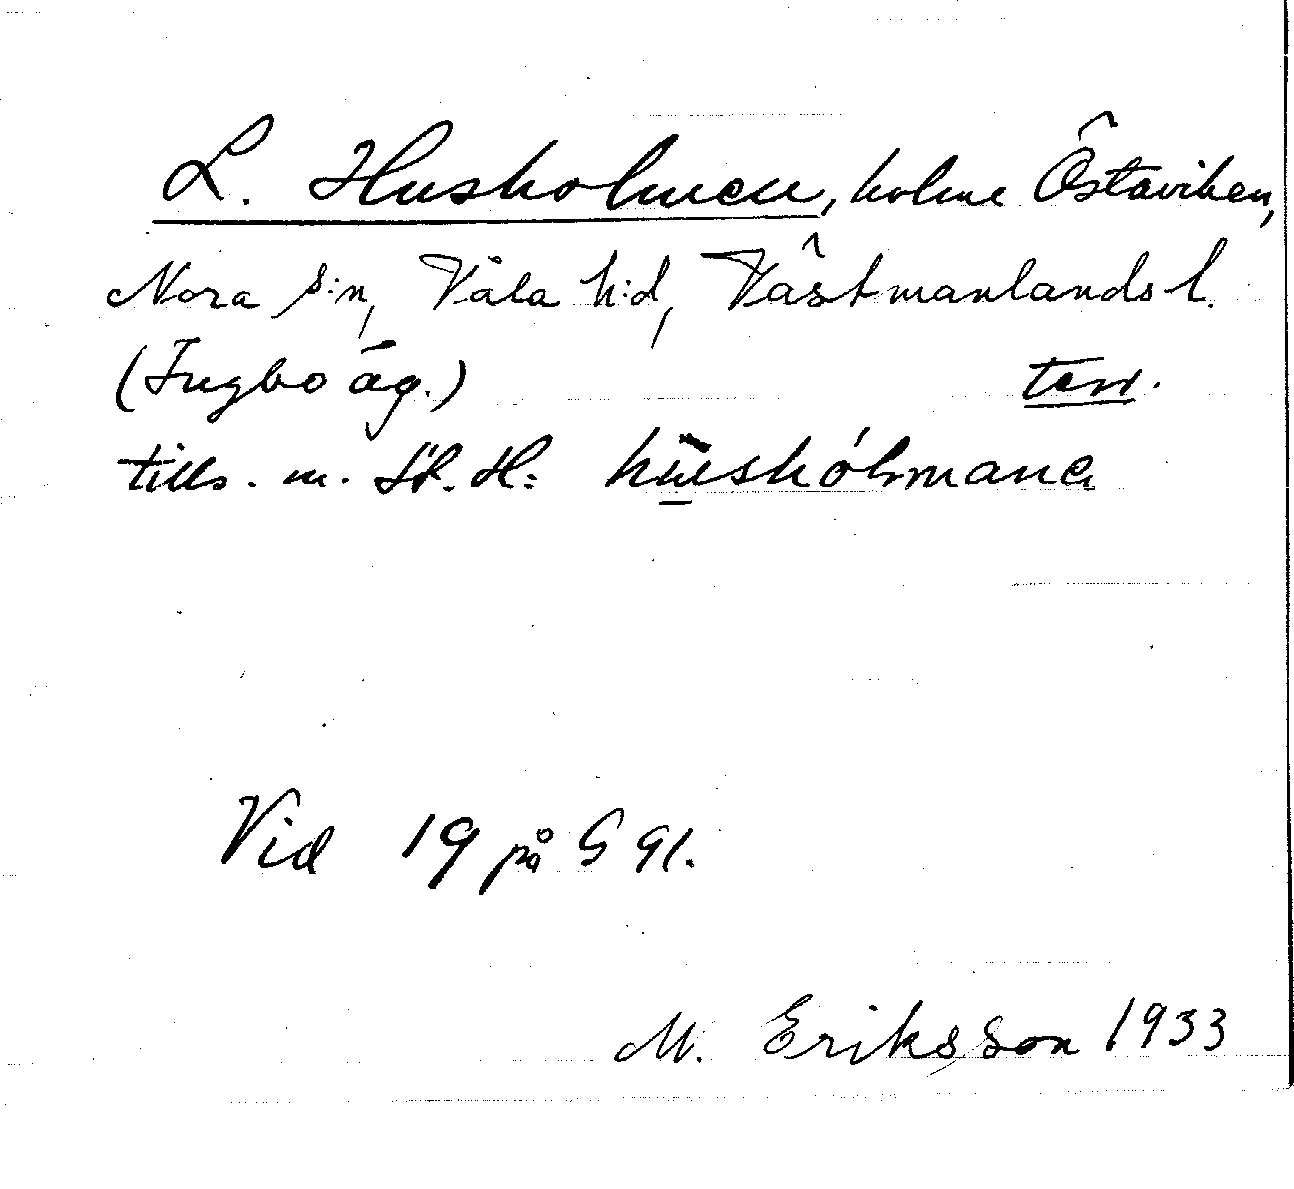 L. Husholmen, holme Östaviken,
Nora s:n, Våla h:d, Västmanlands l.
(Ingbo äg.) terr.
tills. m. St. H: hüshólmana
Vid 19 på G 91.
M. Eriksson 1933